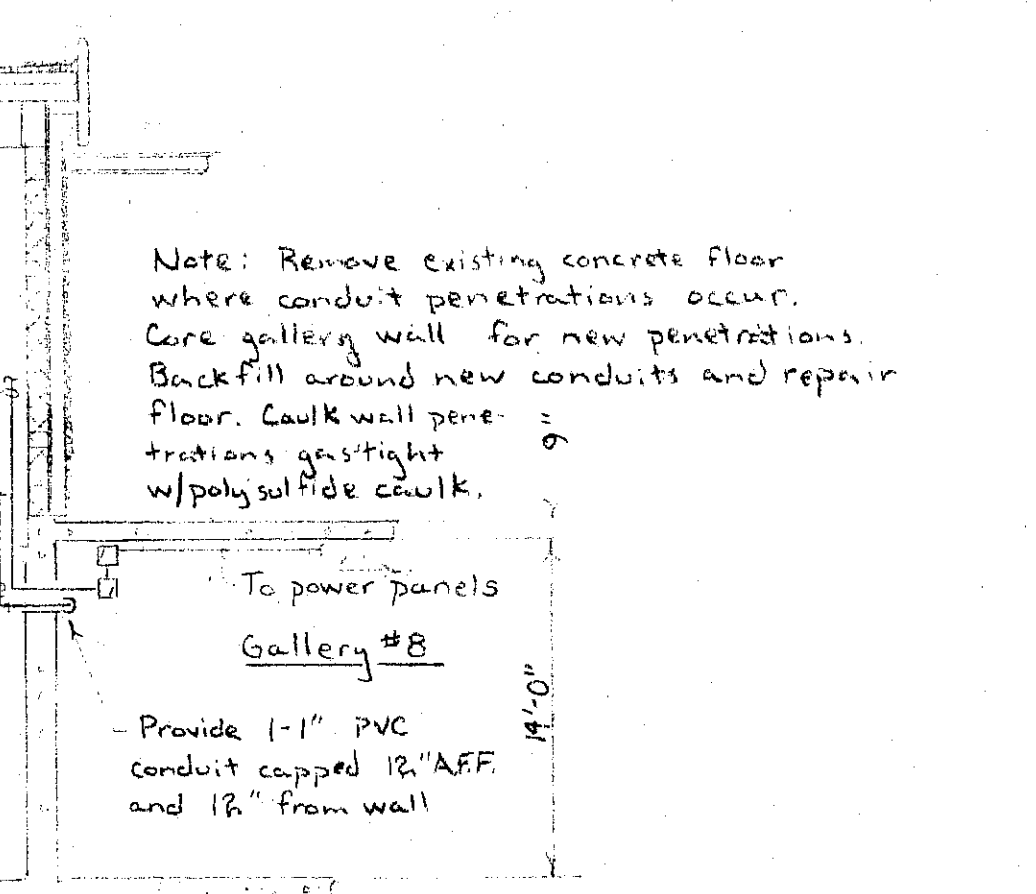 Note: Remove existing concrete floor
where conduit penetrations occur.
Core gallery wall for new penetrations.
Backfill around new conduits and repair
floor. Caulk wall pene-
trations gastight
w/polysulfide caulk.
9"
To power panels
Gallery #8
14'-0"
Provide 1-1" PVC
conduit capped 12" A.F.F.
and 12" from wall